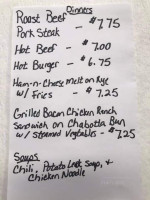 Dinners
Roast Beef - $7.75
Pork Steak
Hot Beef - $7.00
Hot Burger - $6.75
Ham-n-Cheese Melt on Rye
w/ Fries - $7.25
Grilled Bacon Chicken Ranch
Sandwich on Chabotta Bun
w/ Steamed Vegetables - $7.25
Soups
Chili, Potato Leek Soup, &
Chicken Noodle